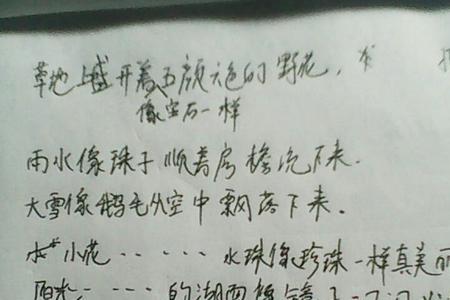 草地上盛开着五颜六色的野花，
像宝石一样
雨水像珠子顺着房檐流下来.
大雪像鹅毛从空中飘落下来.
小花····· 水珠像珍珠一样真美丽
阳光···· 的湖面像